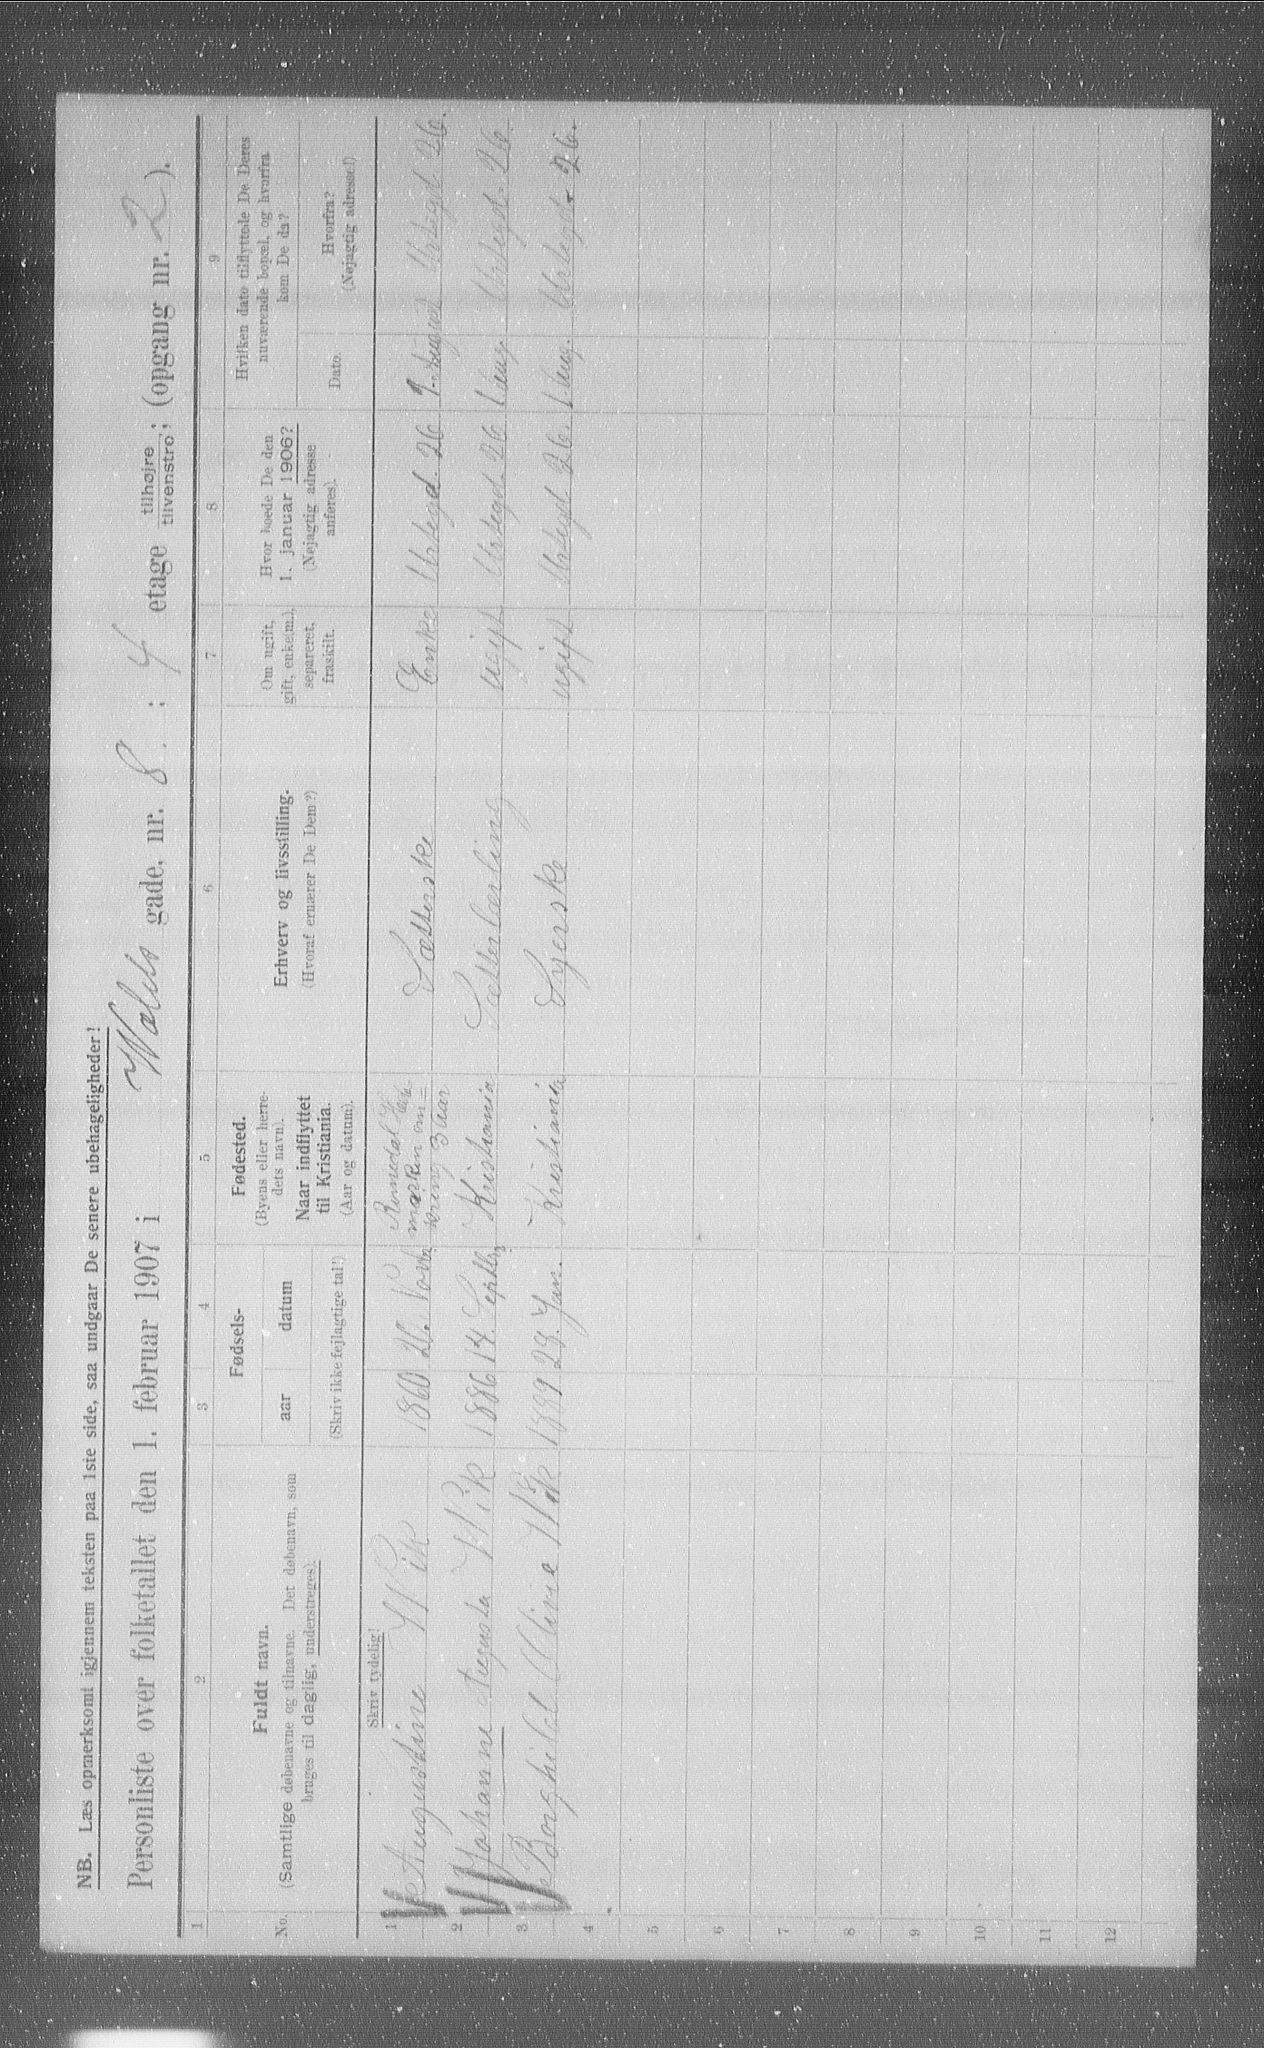 NB. Læs opmerksomt igjennem teksten paa 1ste side, saa undgaar De senere ubehageligheder!
Personliste over folketallet den 1. februar 1907 i Wæhls gade, nr. 8. : 4 etage tilhøjre tilvenstro; (opgang nr. 2).
1 2 3 4 5 6 7 8 9
No.
Fuldt navn.
(Samtlige døbenavne og tilnavne. Det døbenavn, som
bruges til daglig, understreges).
Fødsels-
aar datum
(Skriv ikke fejlagtige tal!)
Fødested.
(Byens eller herre-
dets navn).
Naar indflyttet
til Kristiania.
(Aar og datum).
Erhverv og livsstilling.
(Hvoraf ernærer De Dem?)
Om ugift,
gift, enke(m.),
separeret,
fraskilt.
Hvor boede De den
1. januar 1906?
(Nøjagtig adresse
anføres).
Hvilken dato tilflyttede De Deres
nuværende bopæl, og hvorfra
kom De da?
Dato.
Hvorfra?
(Nøjagtig adresse!)
Skriv tydelig!
1 Augustine Wik 1860 26. Novb. Romedal Hede
marken om=
kring 3 Aar Sætterske Enke Urtegd. 26 1. August Urtegd. 26.
2 Johanne Augusta Wik 1886 14. Septbr Kristiania Sætterlærling ugift Urtegd. 26 1 Aug. Urtegd. 26.
3 Borghild Alima Wik 1889 28. Jan. Kristiania Syerske ugift Urtegd. 26. 1 Aug. Urtegd. 26.
4
5
6
7
8
9
10
11
12